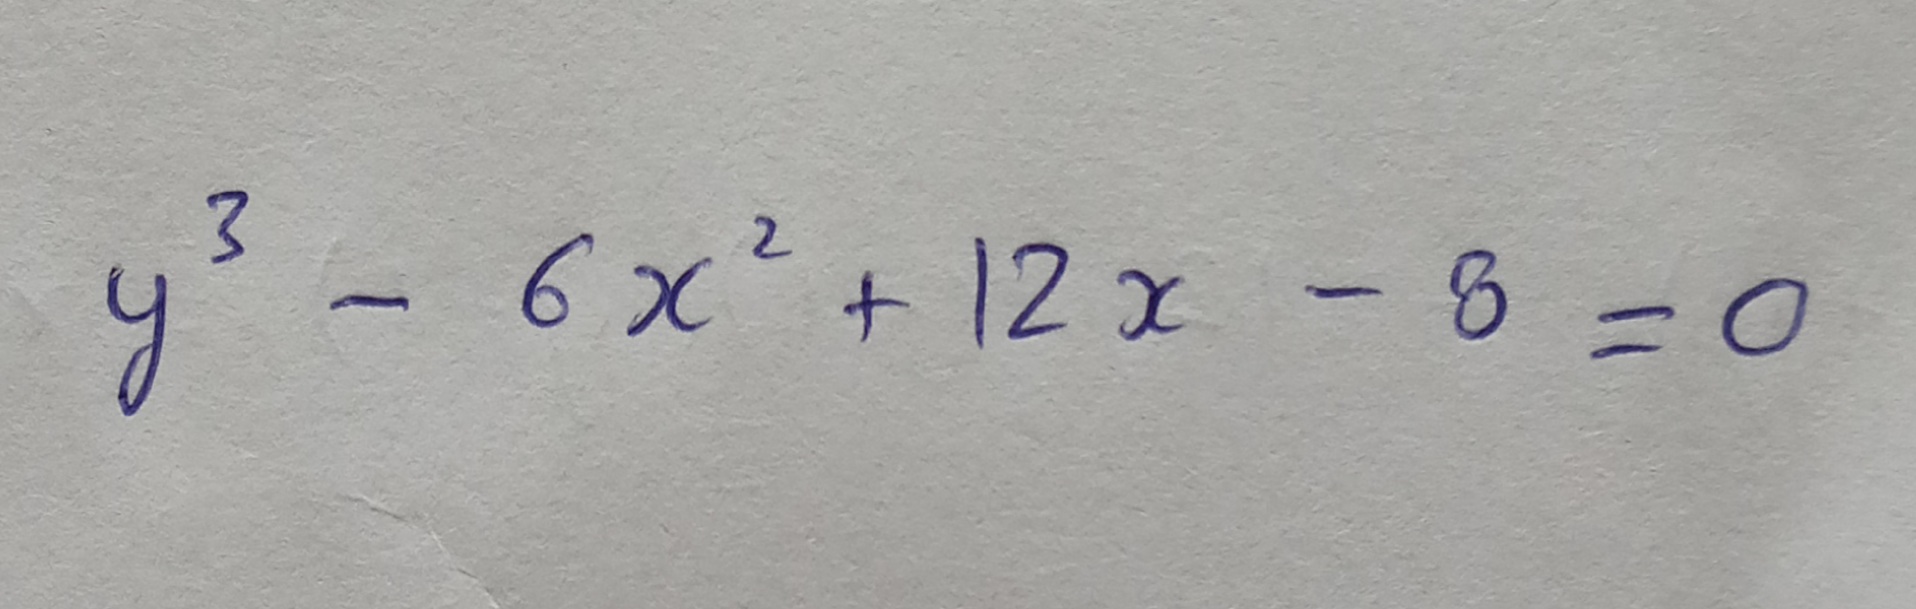 y³ - 6x² + 12x - 8 = 0